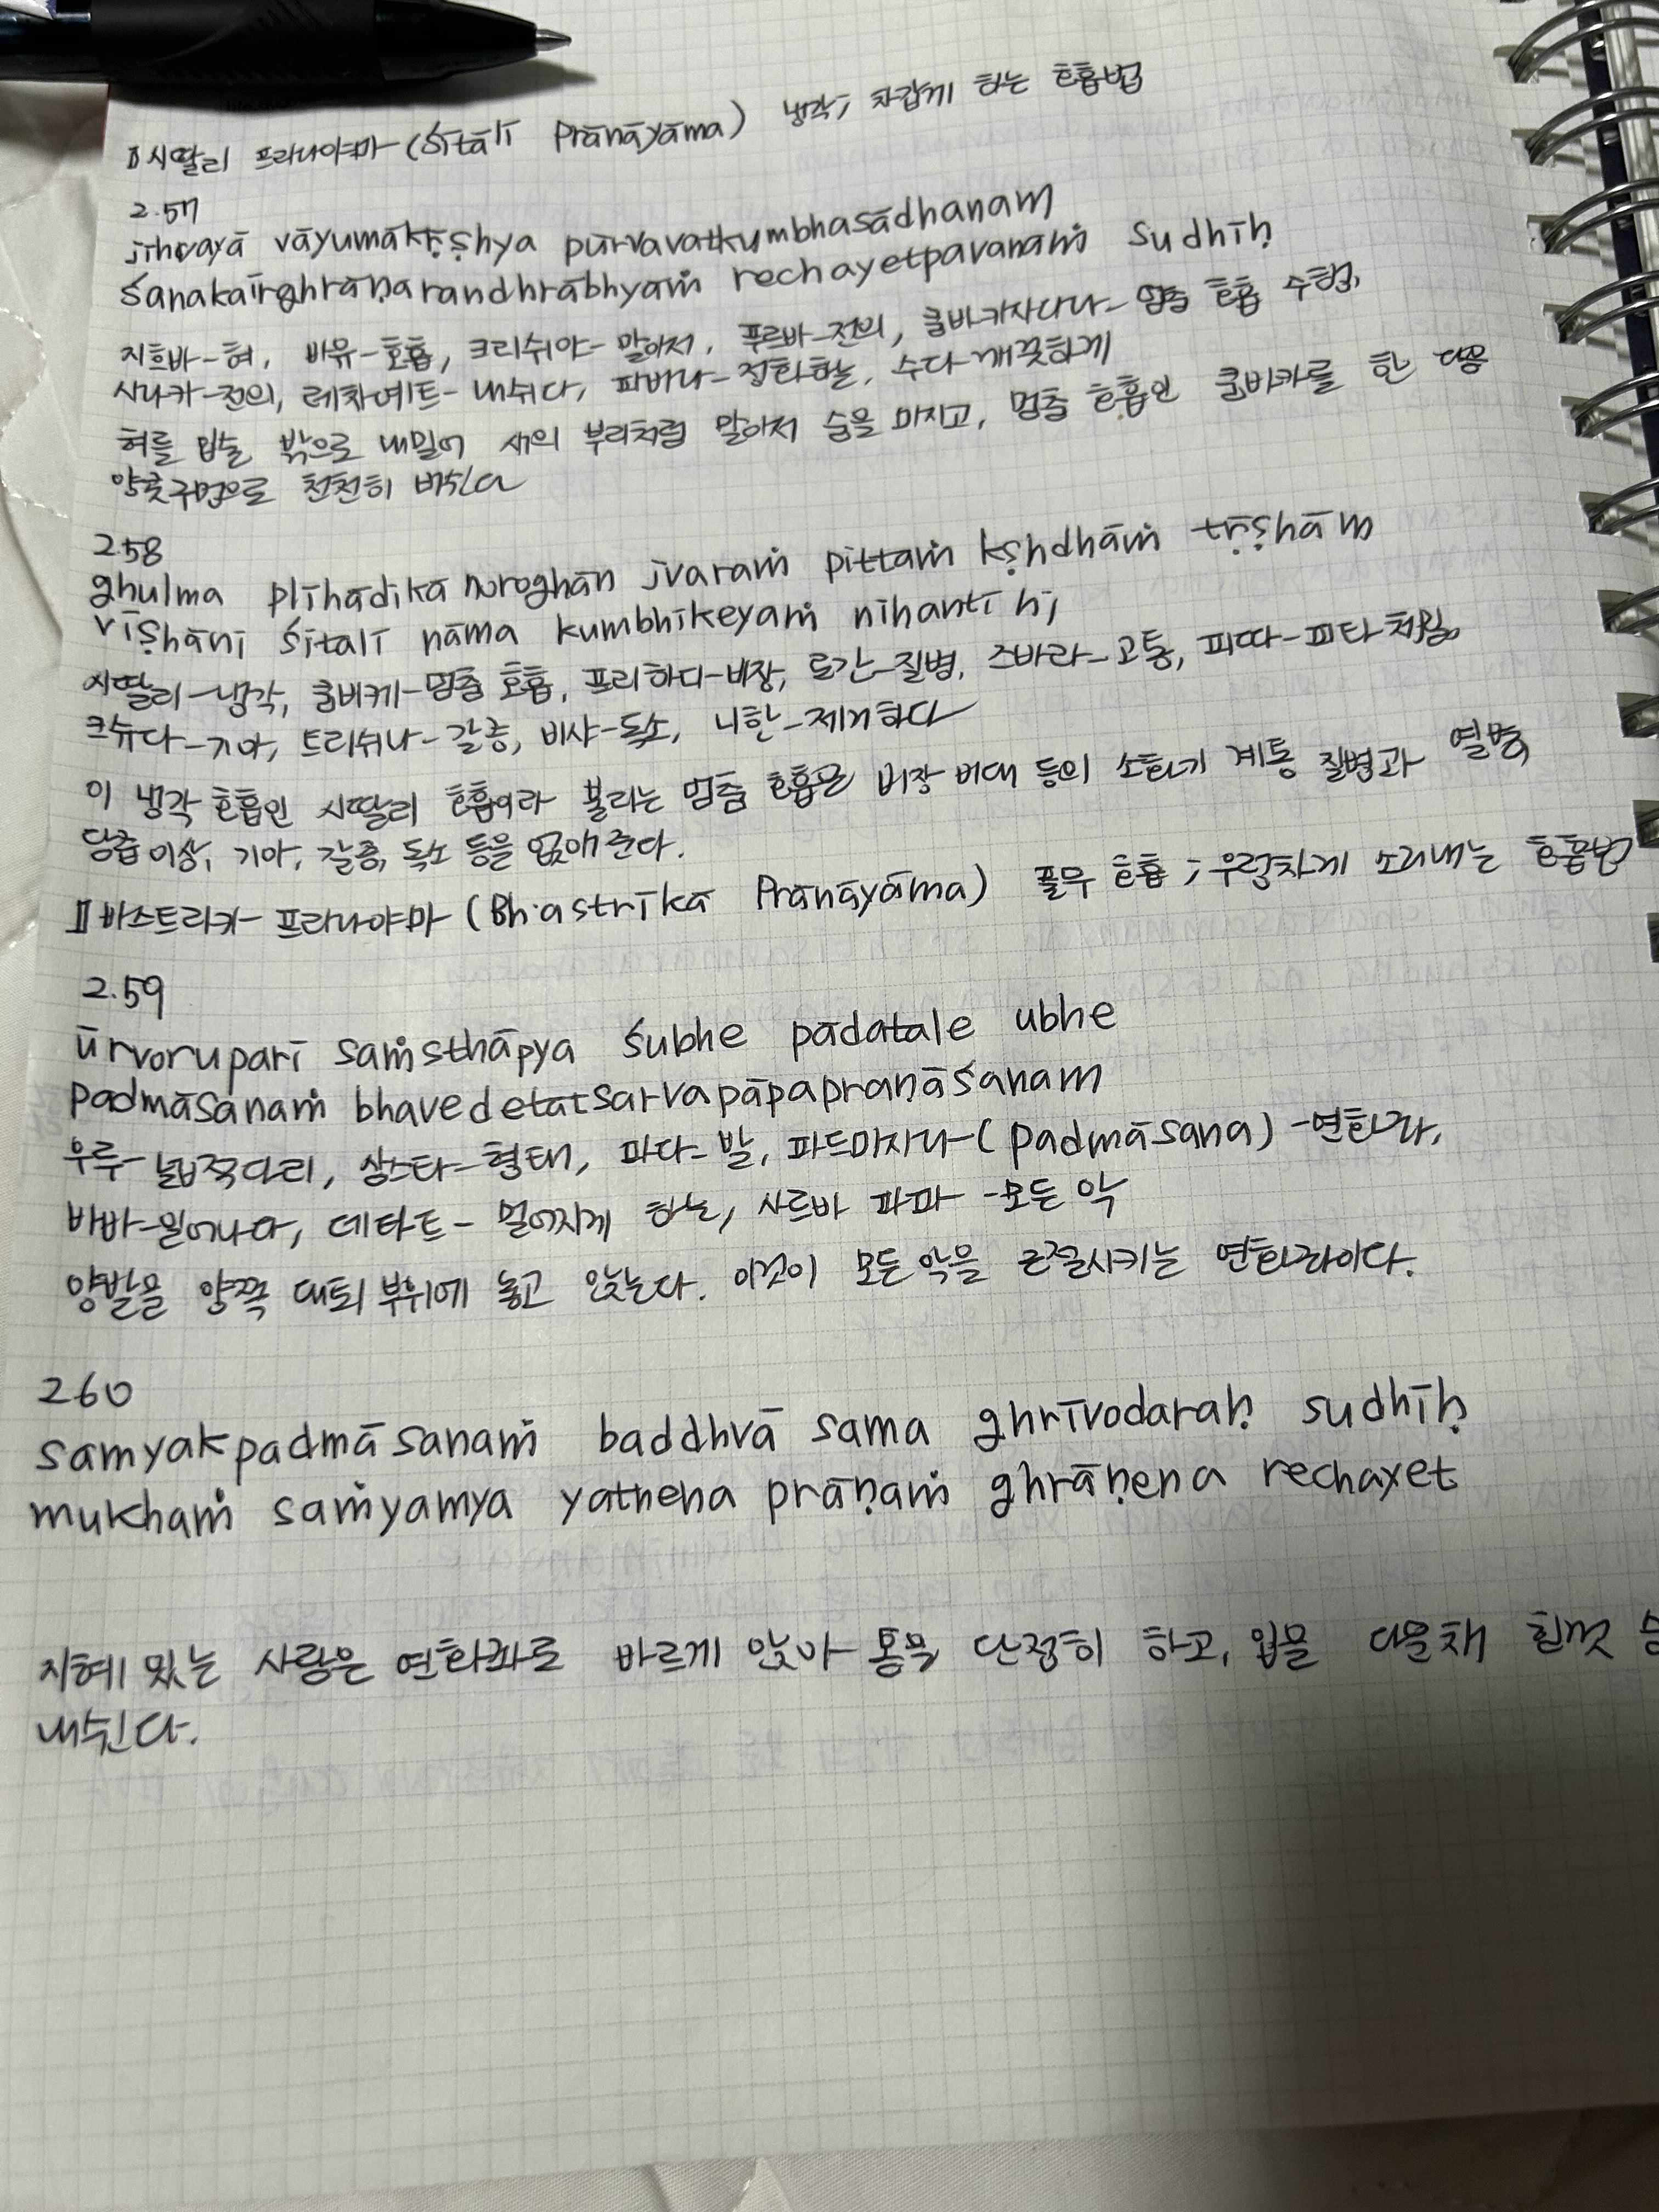 Ⅱ시딸리 프라나야마-(Śītālī Prānāyāma) 냉각; 차갑게 하는 호흡법
2.57
jihvayā vāyumākṛṣhya pūrvavatkumbhasādhanam
śanakaīrghrāṇarandhrābhyaṁ rechayetpavanaṁ sudhīḥ
지흐바-혀, 바유-호흡, 크리쉬야-말아서, 푸르바-전의, 쿰바카사다나-멈춤 호흡 수행,
사나카-전의, 레차예트-내쉬다, 파바나-정화하는, 수다-깨끗하게
혀를 입술 밖으로 내밀어 새의 부리처럼 말아서 숨을 마시고, 멈춤 호흡인 쿰바카를 한 다음
양콧구멍으로 천천히 뱉는다
2.58
ghulma plīhādikā noroghān jvaraṁ pittaṁ kṣhdhāṁ tṛṣhām
vīṣhānī śītalī nāma kumbhikeyaṁ nihantī hi
시딸리-냉각, 쿰비케-멈춤 호흡, 프리하디-비장, 로간-질병, 즈바라-고통, 피따-피타 처럼,
크슈다-기아, 트리쉬나-갈증, 비샤-독소, 니한-제거하다
이 냉각 호흡인 시딸리 호흡이라 불리는 멈춤 호흡은 비장 비대 등의 소화기 계통 질병과 열병,
담즙이상, 기아, 갈증, 독소 등을 없애준다.
Ⅱ바스트리카-프라나야마(Bhastrīkā Prānāyāma) 풀무 호흡; 우렁차게 소리내는 호흡법
2.59
ūrvoruparī saṁsthāpya śubhe pādatale ubhe
padmāsanaṁ bhavedetatsarvapāpapraṇāśanam
우루-넓적다리, 삼스타-형태, 파다-발, 파드마사나-(padmāsana)-연화좌,
바바-일어나다, 데타트-멀어지게 하는, 사르바 파파-모든 악
양발을 양쪽 대퇴부위에 놓고 앉는다. 이것이 모든 악을 근절시키는 연화좌이다.
2.60
samyakpadmāsanaṁ baddhvā sama ghrīvodaraḥ sudhīḥ
mukhaṁ saṁyamya yatnena prāṇaṁ ghrāṇena rechayet
지혜 있는 사람은 연화좌로 바르게 앉아 몸을 단정히 하고, 입을 다문채 힘껏
내쉰다.